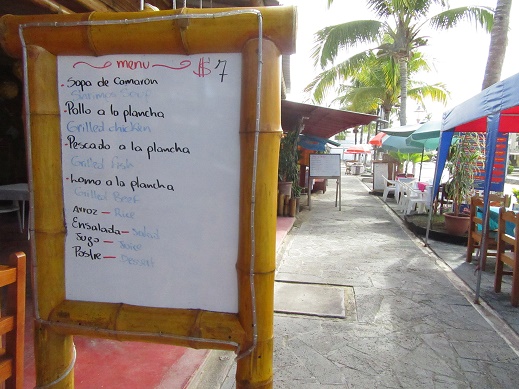 menu $7
-Sopa de Camaron
Shrimps Souf
-Pollo a la plancha
Grilled chicken
-Pescado a la plancha
Grilled fish
-Lomo a la plancha
Grilled Beef
Arroz - Rice
Ensalada - Salad
Jugo - Juice
Postre - Dessert